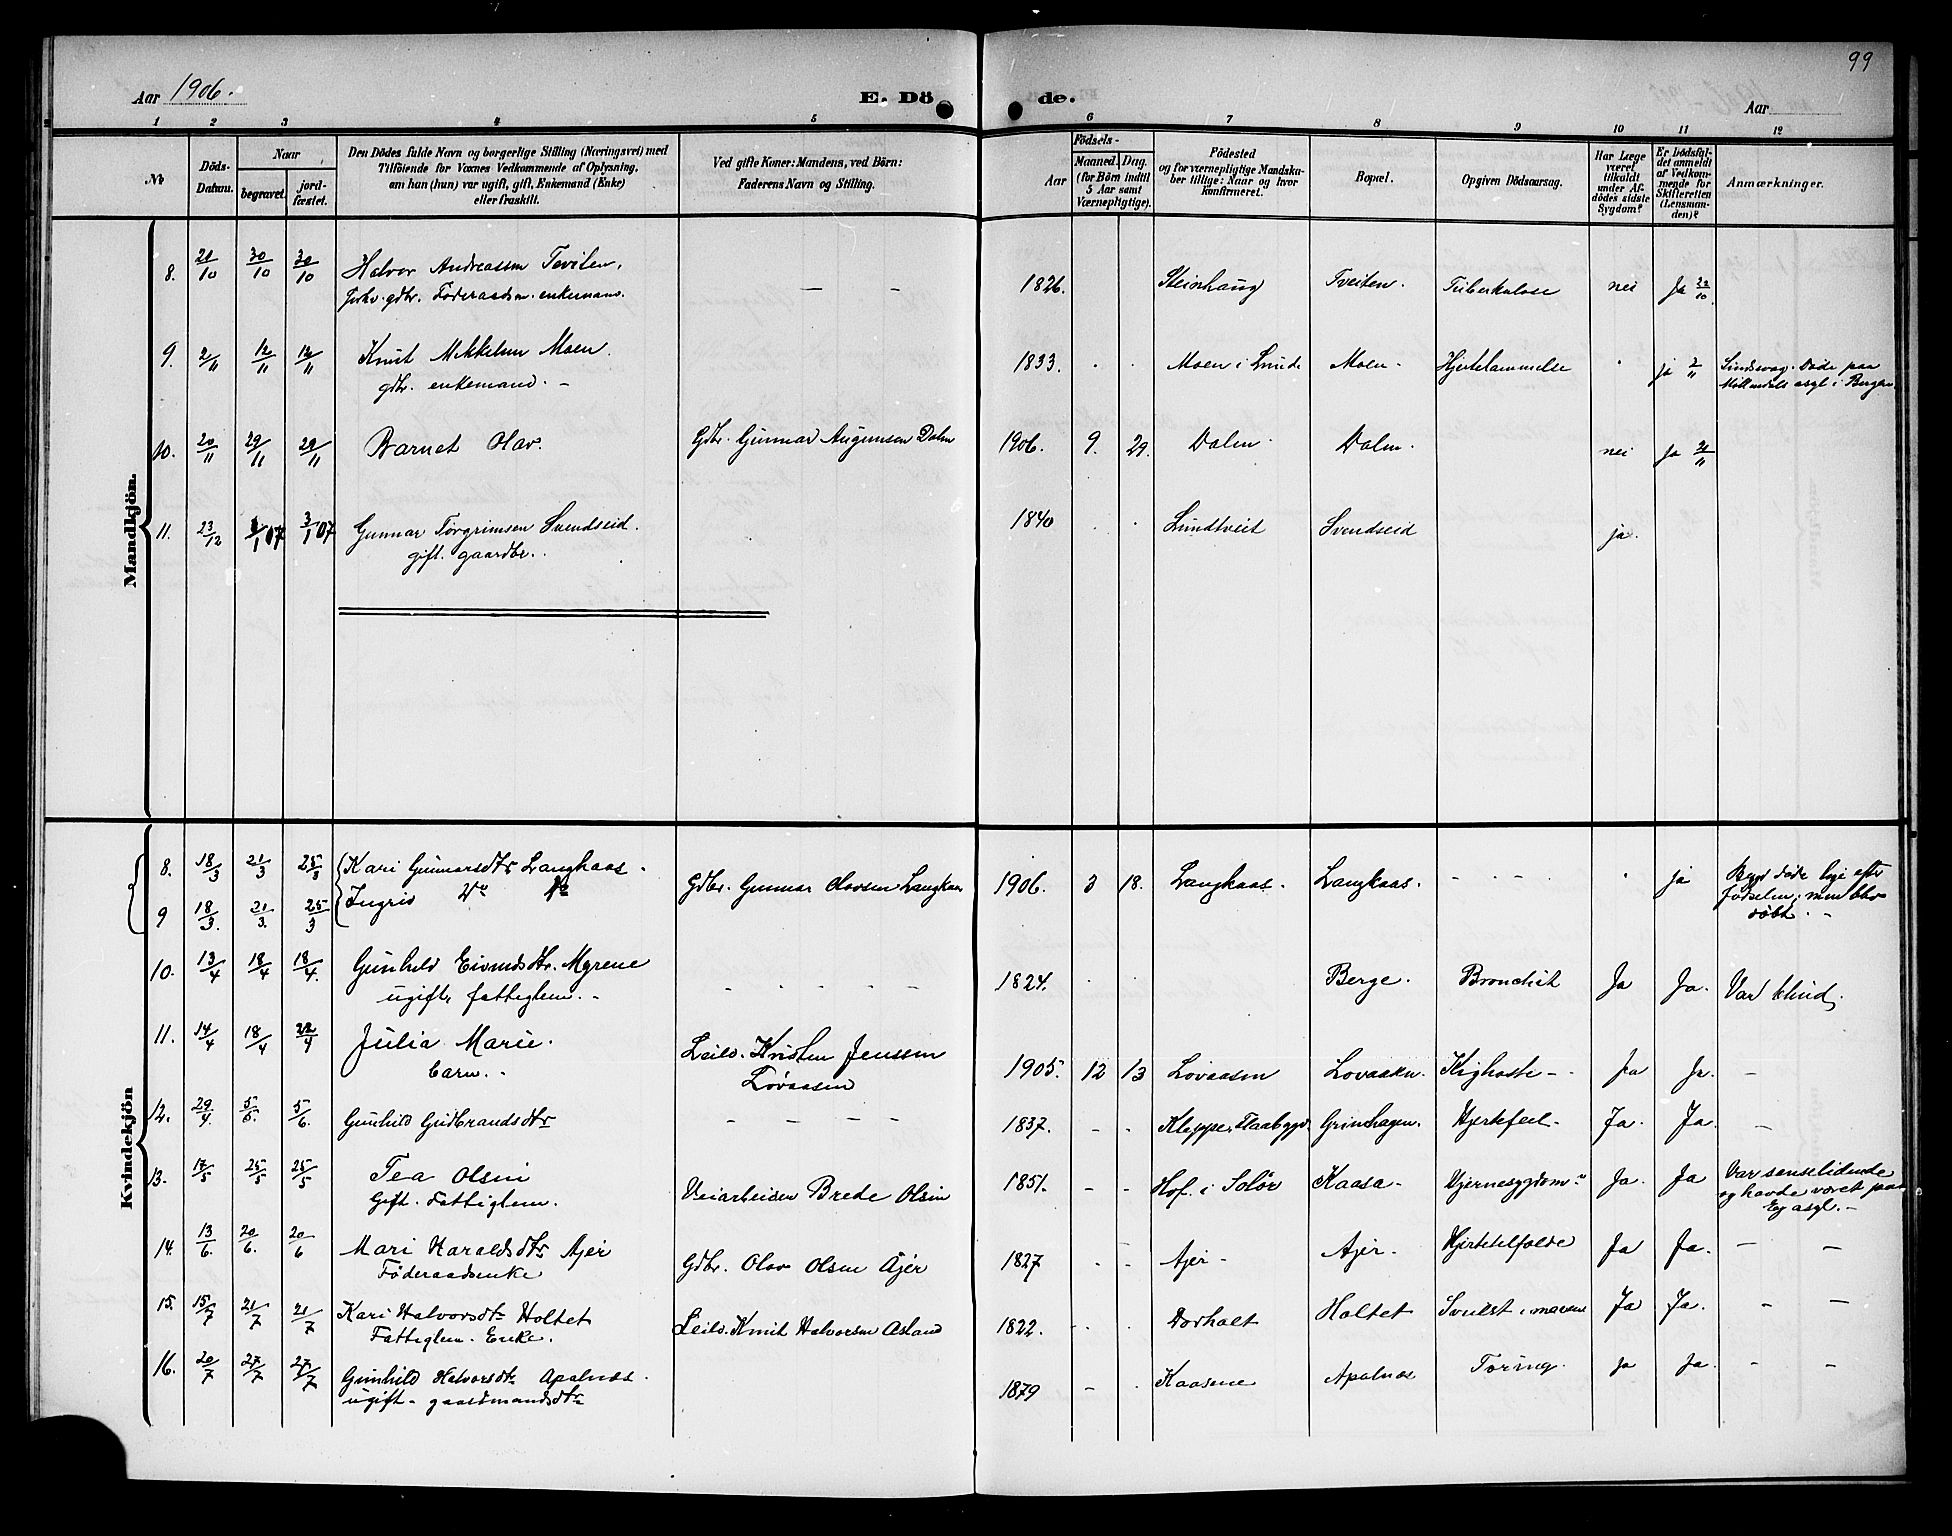 99
Aar 1906.
E. Dö de.
Aar
1 2 3 4 5 6 7 8 9 10 11 12
№
Döds-
Datum.
Naar
begravet.
jord-
fæstet.
Den Dödes fulde Navn og borgerlige Stilling (Næringsvei) med
Tilföiende for Voxnes Vedkommende af Oplysning,
om han (hun) var ugift, gift, Enkemand (Enke)
eller fraskilt.
Ved gifte Koner: Mandens, ved Börn:
Faderens Navn og Stilling.
Födsels-
Aar
Maaned. Dag.
(for Börn indtil
5 Aar samt
Værnepligtige).
Födested
og for værnepligtige Mandska-
ber tillige: Naar og hvor
konfirmeret.
Bopæl.
Opgiven Dödsaarsag.
Har Læge
været
tilkaldt
under Af-
dödes sidste
Sygdom?
Er Dödsfal-
det anmeldt
af Vedkom-
mende for
Skifteretten
(Lensman-
den)?
Anmærkninger.
Mandkjön.
8. 21/10 30/10 30/10 Halvor Andreassen Tveiten, — — 1826. Steinhaug Tveiten. Tuberkulose nei Ja 22/10.
forhv. gdbr. Föderaadsm. enkemand.
9. 2/11 12/11 12/11 Knut Mikkelsen Moen. 1833. . . Moen i Lunde Moen - Hjertelammelse . ja 2/11 Sindssvag. Döde paa
gdbr. enkemand. - Möllendals asyl i Bergen
10. 20/11 29/11 29/11 Barnet Olav. Gdbr. Gunnar Augunsen Dalen 1906. 9. 29. Dalen. Dalen. nei Ja 21/11
11. 23/12 3/1 07 3/1 07 Gunnar Torgrimsen Svendseid. 1840 . . Lundtveit Svendseid ja.
gift. gaardbr.
Kvindekjön
8. 18/3 21/3 25/3 Kari Gunnarsdtr Langkaas. Gdbr. Gunnar Olavsen Langkaas 1906. 3 18. Langkaas. Langkaas. - - - . ja Begge döde lige efter
9 18/3. 21/3. 25/3 Ingrid do do födselen, men blev
döbt. -
10. 13/4 18/4 18/4. Gunhild Eivindsdtr. Myrene - - - - 1824. . Berge. Bronchit Ja Ja. Var blind.
ugift, fattiglem. -
11. 14/4 18/4 22/4 Julia Marie. Leild. Kristen Jenssen 1905. 12 13 Lovaasen Lovaasen. Kighoste - Ja Ja. -
barn. - Lovaasen
12. 29/4. 5/5. 5/6. Gunhild Gudbrandsdtr - - - - 1837. - . Kleppe, Flaabygd. Grinihagen. Hjertefeil. Ja. Ja. -
13. 17/5 25/5 25/5 Tea Olsen Veiarbeider Brede Olsen 1851. - - Hof i Solör Kaasa - Hjernesygdom. Ja. Ja Var senselidende
Gift. Fattiglem. og havde været paa
Eg asyl. -
14. 13/6. 20/6. 20/6 Mari Haraldsdtr Ajer Gdbr. Olav Olsen Ajer 1827 - - Ajer - Ajer. Hjertetilfælde Ja Ja. - -
Föderaadsenke
15. 15/7 21/7 21/7 Kari Halvorsdtr Holtet Leild. Knut Halvorsen Asland 1822. . . Dorholt Holtet Svulst i maven Ja Ja. - -
Fattiglem. Enke.
16. 20/7 27/7 27/7 Gunhild Halvorsdtr Apalnæs. 1879 - . Kaasene Apalnæs Tæring. Ja Ja. - -
ugift - gaardmandsdtr